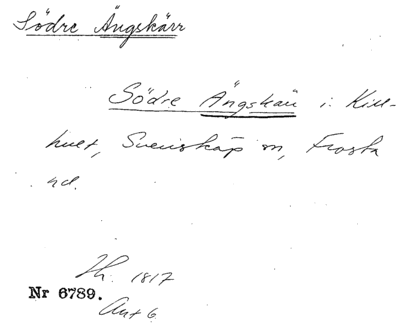 Södre Ängskärr
Södre Ängskärr i Kill-
hult, Svensköp sn, Frosta
hd.
Lh. 1817
Nr 6789.
Akt 6